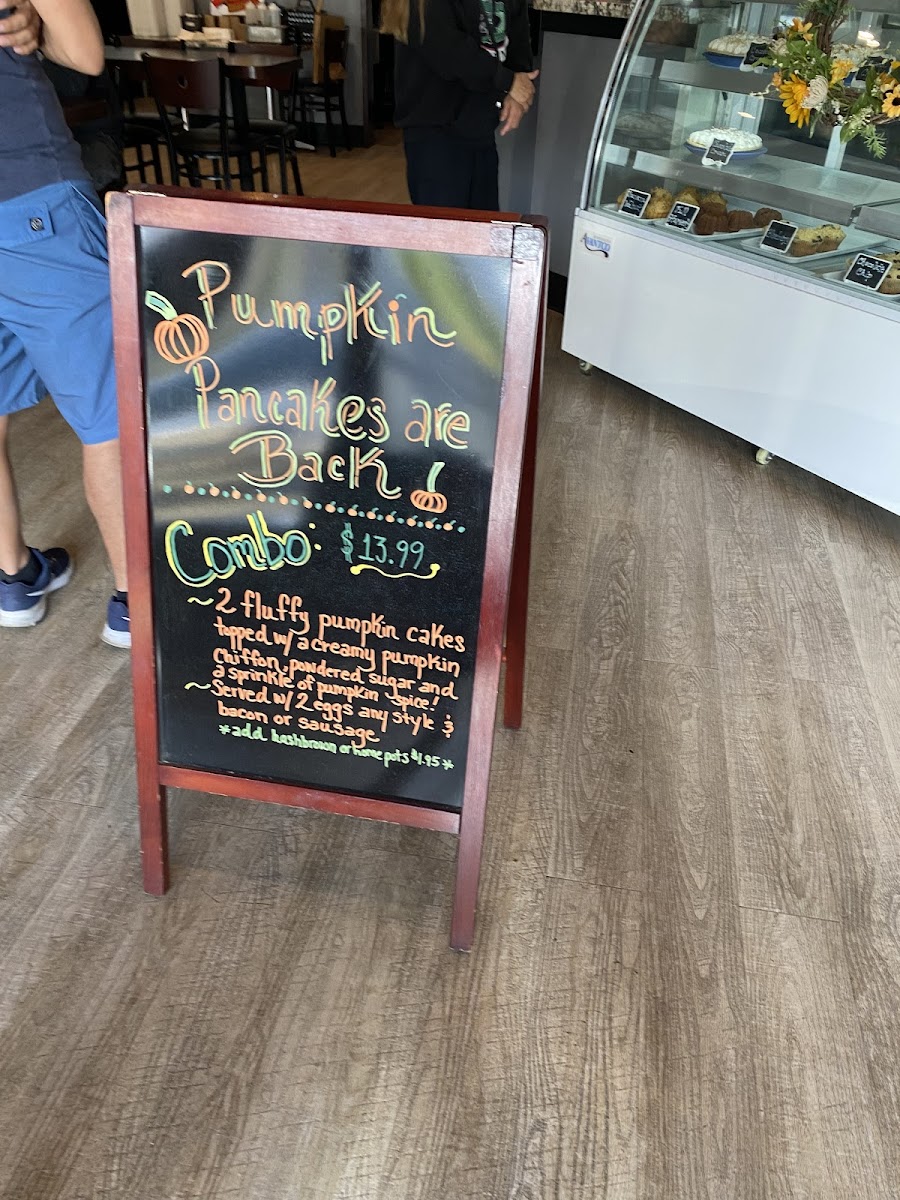 Pumpkin
Pancakes are
Back
Combo: $13.99
~2 fluffy pumpkin cakes
topped w/ a creamy pumpkin
Chiffon, powdered sugar and
a sprinkle of pumpkin spice!
~Served w/ 2 eggs any style &
bacon or sausage
*add hashbrown or home pots $1.95*
Chocolate
Chip